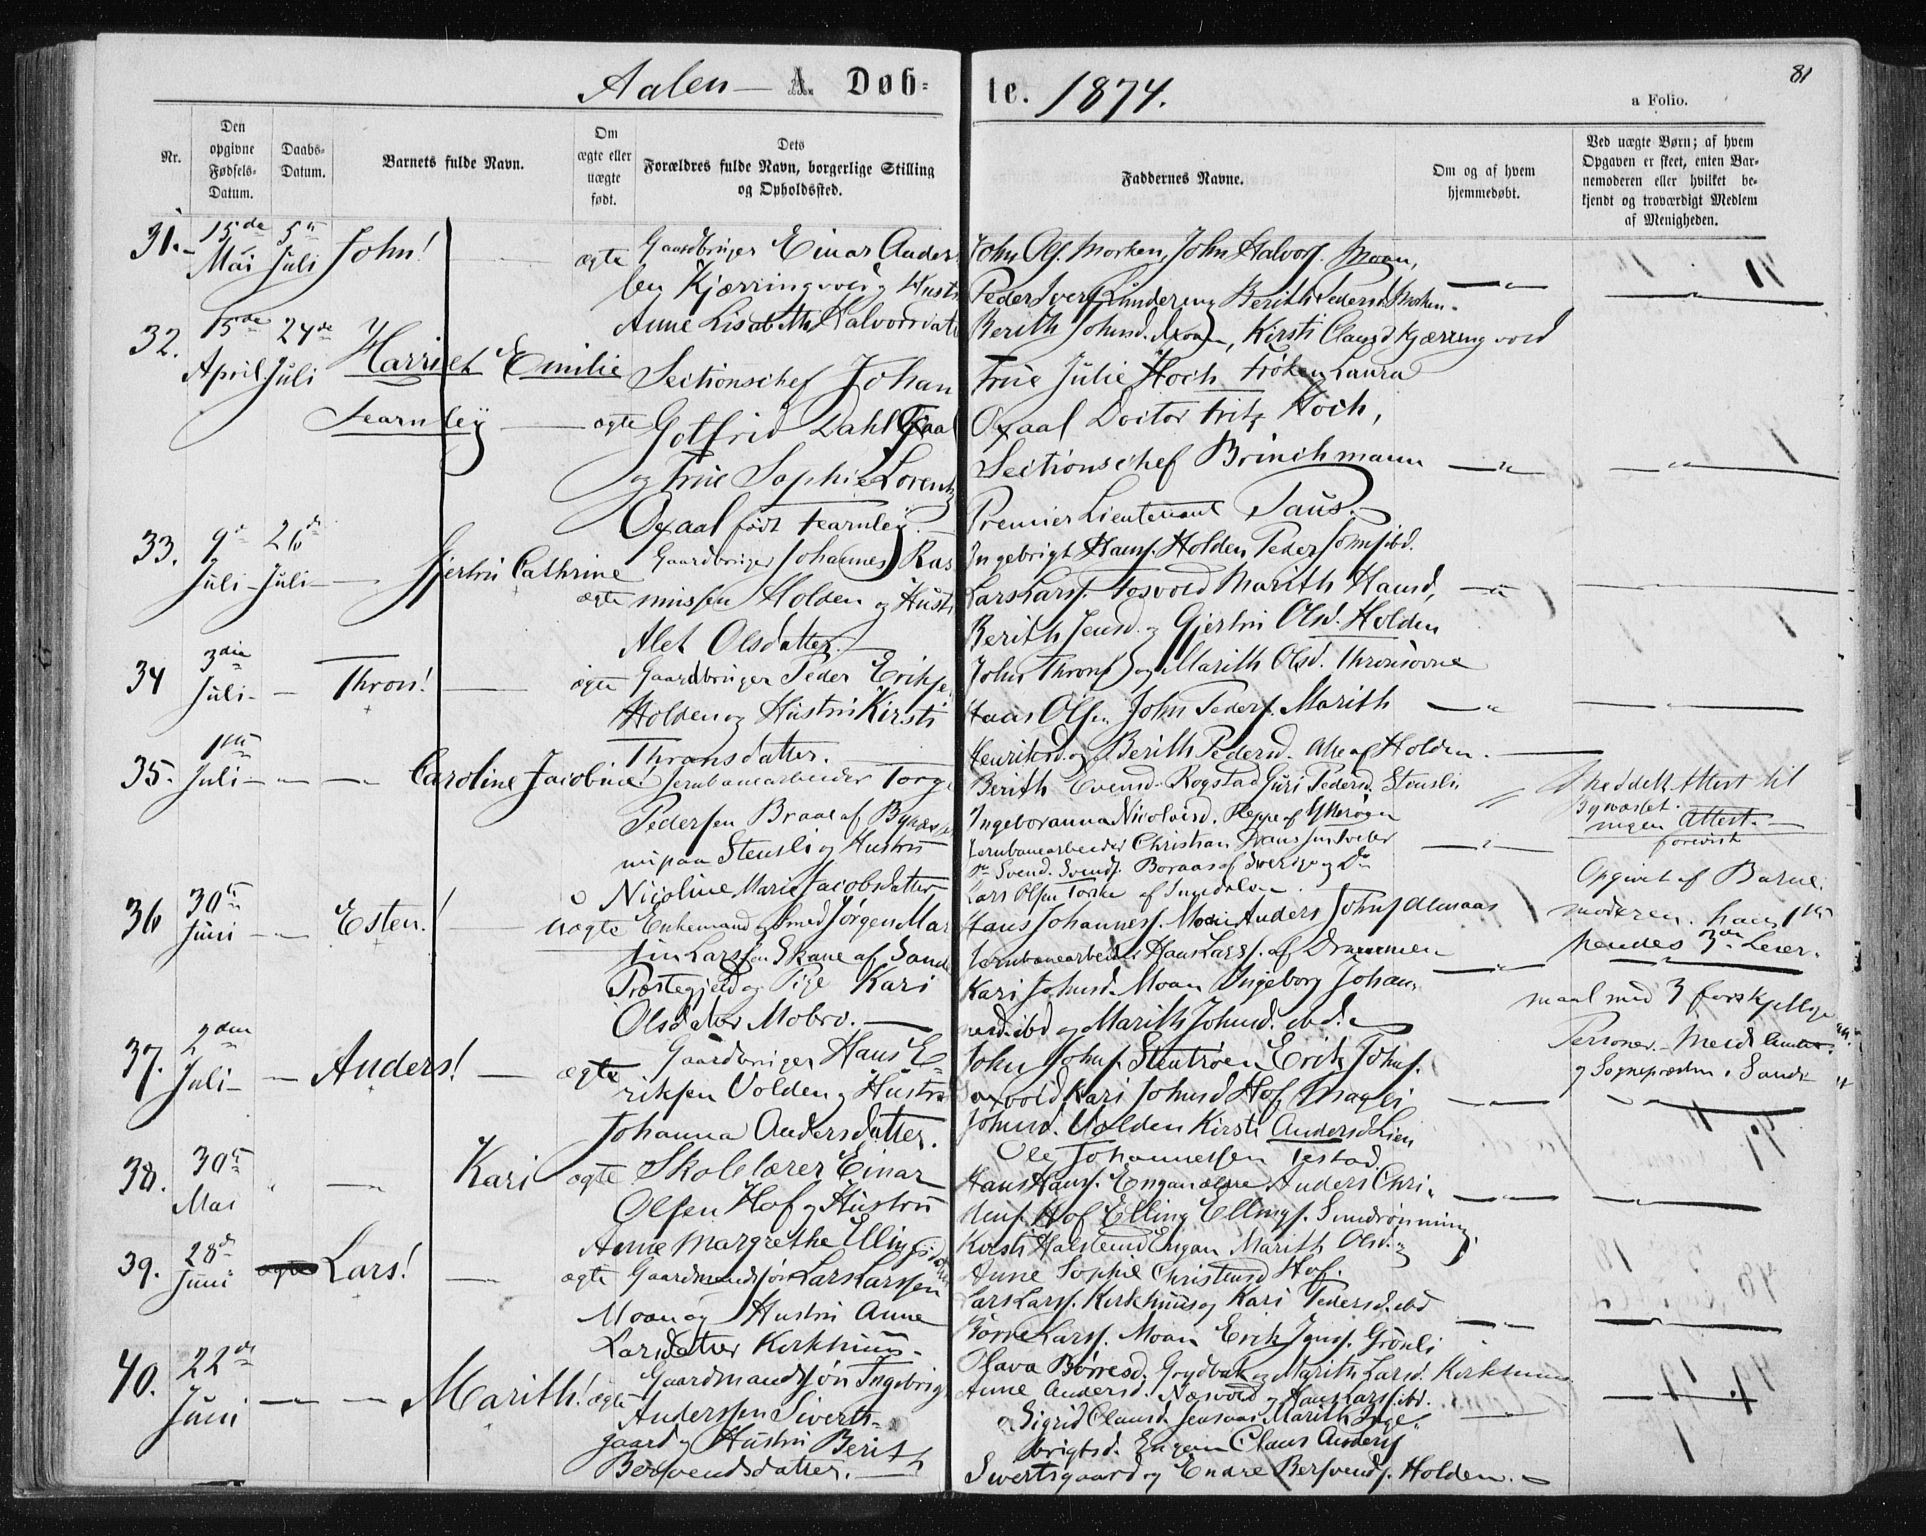 81
Aalen — A. Døb-
te. 1874.
a Folio.
Nr.
Den opgivne Fødsels-Datum.
Daabs-Datum.
Barnets fulde Navn.
Om ægte eller uægte født.
Dets Forældres fulde Navn, borgerlige Stilling og Opholdssted.
Faddernes Navne.
Om og af hvem hjemmedøbt.
Ved uægte Børn; af hvem
Opgaven er skeet, enten Bar-
nemoderen eller hvilket be-
kjendt og troværdigt Medlem
af Menigheden.
31. 15de Mai 5te Juli John! ægte Gaardbruger Einar Anders
sen Kjærringvold og Hustr
Anne Lisabeth Halvorsdatt
John Ols. Morken, John Halvors. Moan,
Peder Ivers. og Berith Pedersd. Morken.
Berith Johnsd. Moan, Kirsti Clausd Kjærringvold
32. 15de April 24de Juli Harriet Emilie
Fearnley ægte
Sectionschef Johan
Gotfrid Dahl Oxaal
og Frue Sophie Lorentz
Oxaal født Fearnley.
Frue Julie Hoch Frøken Laura
Oxaal Doctor Fritz Hoch,
Sectionschef Brinchmann
Premier Lieutenant Paus.
33. 9de Juli 26de Juli Gjertru Cathrine ægte
Gaardbruger Johannes Ras
mussen Holden og Hustr
Alet Olsdatter.
Ingebrigt Hans. Holden Peder Johns. ibd.
Lars Lars. Marith Hansd,
Berith Jensd. og Gjertru Olsd. Holden
34 3die Juli Thron! ægte Gaardbruger Peder Erikse
Holden og Hustru Kirsti
Thronsdatter.
John Throns. og Marith Olsd. Thronsovne
Hans Olsen John Peders. Marith
Henriksd. og Berith Pedersd. Alle af Holden.
35. 1ste Juli Caroline Jacobine! Jernbanearbeider Torge
Pedersen Braae af Bynæsse
nu paa Stensli og Hustru
Nicoline Marie Jacobsdatter
Berith Evensd. Rogstad Guri Pedersd. Stensli
Ingeboranna Nicolaisd. Heppe af Ytterøen
Jernbanearbeider Christian Hanssen
Svend. Svends. Boraas af Sverige og Do
Lars Olsen Torske af Singsdalen.
Meddelt Attest til
Bynæsset.
ingen Attest.
forevist
36 30te Juni Esten! uægte Enkemand og Smed Jørgen Mar
tin Larssen Skane af Sande
Præstegjeld og Pige Kari
Olsdatter Mobro.
Hans Johannes. Mo Anders Johns. Almaas
Jernbanearbeider Hans Lars. af Drammen
Kari Johnsd. Moan Ingeborg Johan-
nesd. ibd og Marith Johnsd. ibd.
Opgivet af Barne-
moderen. hans 1ste
hendes 3die Leier-
maal med 3 forskjellige
Personer. Meldt Amtm.
og Sognepræsten i Sande
37. 2den Juli Anders! ægte Gaardbruger Hans E-
riksen Volden og Hustru
Johanna Andersdatter.
John Johns. Stentrøen Erik Johns.
Kari Johnsd Hof Magli
Johnsd. Volden Kirsti Andersd. Lien
Ole Johannessen
38. 30te Mai Kari ægte Skolelærer Einar
Olsen Hof og Hustru
Anne Margrethe Ellingsdatter
Hans Hans. Engan Anders Chri-
stens. Hof Elling Ellings.
Kirsti Halstensd Engan Marith Olsd. og
Anne Sophie Christensd Hof.
39. 28de Juni Lars! ægte Gaardmandssøn Lars Larssen
Moan og Hustru Anne
Larsdatter Kirkhuus.
Lars Lars. Kirkhuus og Kari Pedersd. ibd
Børre Lars. Moan Erik Jens. Grønli
Olava Børresd. Grydbak og Marith Larsd. Kirkhuus
40. 22de Juni Marith! ægte Gaardmandssøn Ingebrigt
Anderssen Siverts-
gaard og Hustru Berith
Bersvendsdatter.
Anne Andersd. Næsvold og Hans Lars. ibd.
Sigrid Clausd. Jensaas Marith Inge-
brigtsd. Engan Claus Anders
Sivertsgaard og Endre Bersvends. Holden.